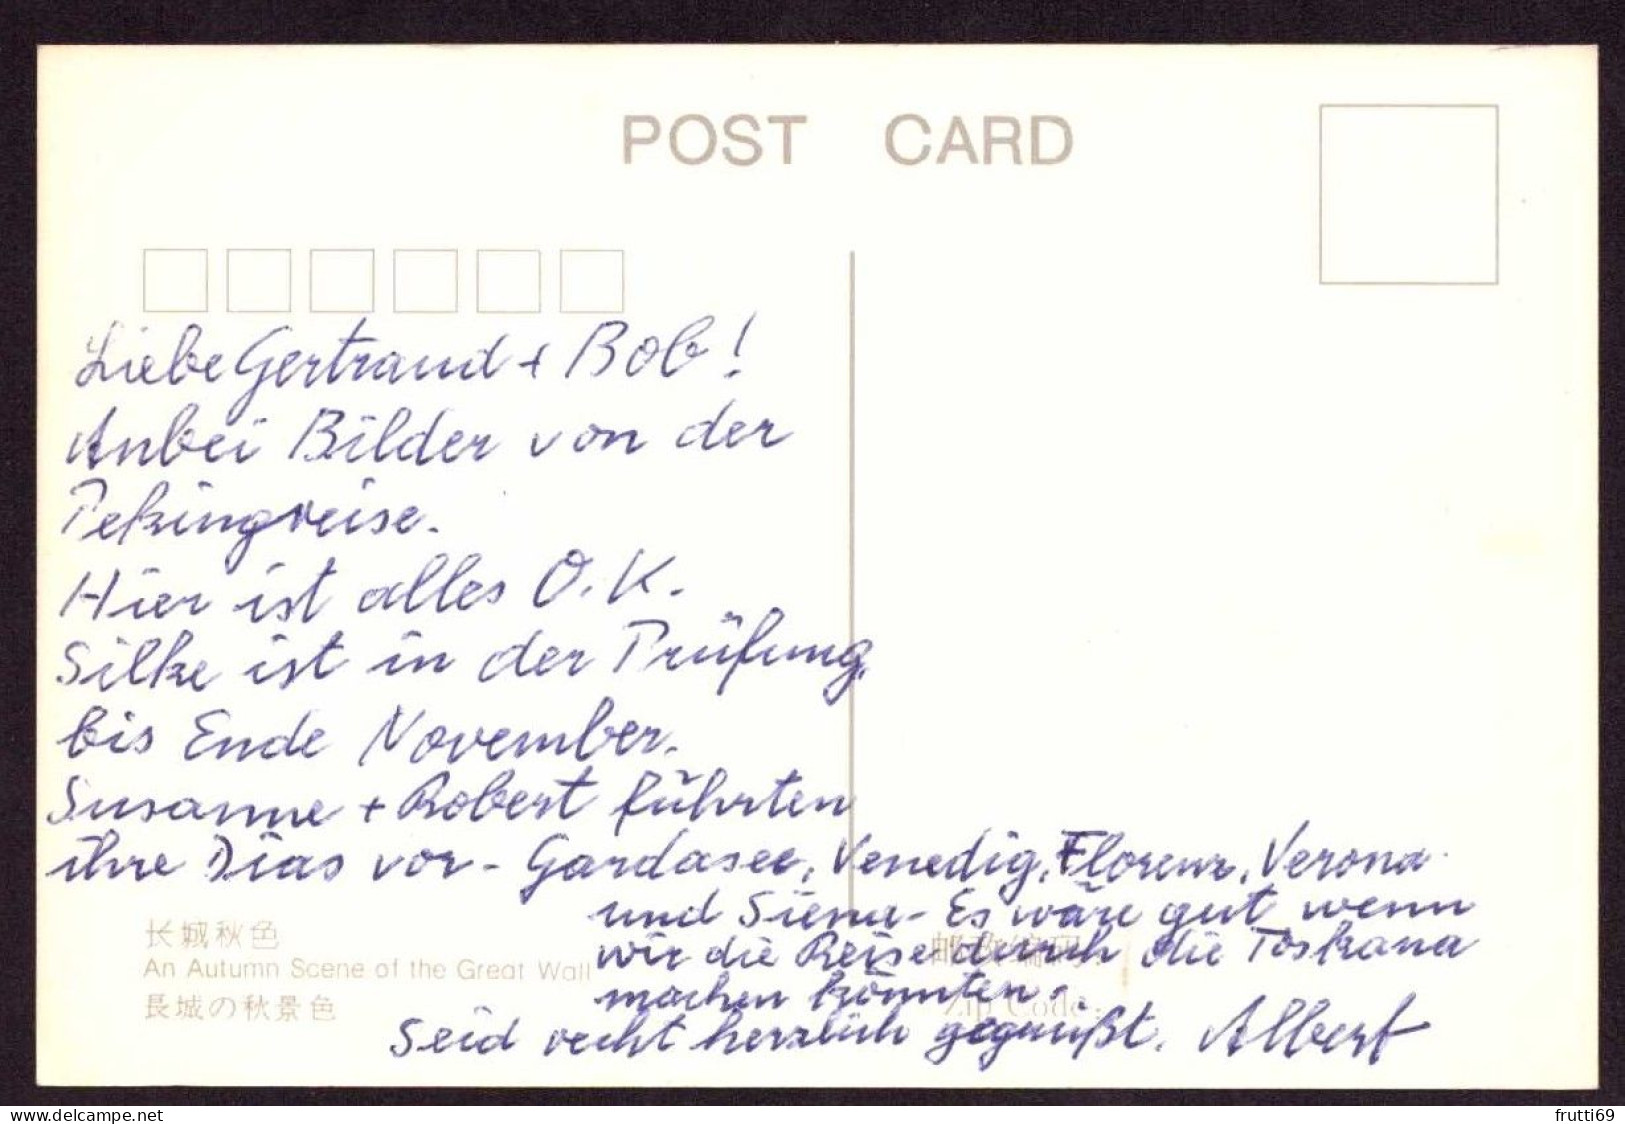 POST CARD
Liebe Gertraud + Bob!
Anbei Bilder von der
Pekingreise.
Hier ist alles O.K.
Silke ist in der Prüfung
bis Ende November.
Susanne + Robert führten
ihre Dias vor - Gardasee, Venedig, Florenz, Verona
und Siena - Es wäre gut wenn
wir die Reise durch die Toskana
machen könnten.
Seid recht herzlich gegrüßt. Albert
长城秋色
An Autumn Scene of the Great Wall
長城の秋景色
邮政编码:
Zip Code:
delcampe.net
frutti69